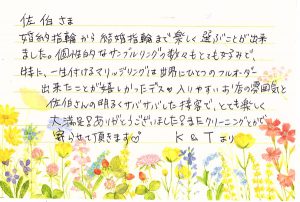 佐伯さま
婚約指輪から結婚指輪まで楽しく選ぶことが出来
ました。個性的なサンプルリングの数々もとてもよろみで、
特に、一生付けるマリッジリングは世界にひとつのフルオーダー
出来たことが嬉しかったデス♥入りやすいお店の雰囲気と
佐伯さんの明るくサバサバした接客で、とても楽しく
大満足♪ありがとうございました♪またクリーニングとかで
寄らせて頂きます♡ K & T より